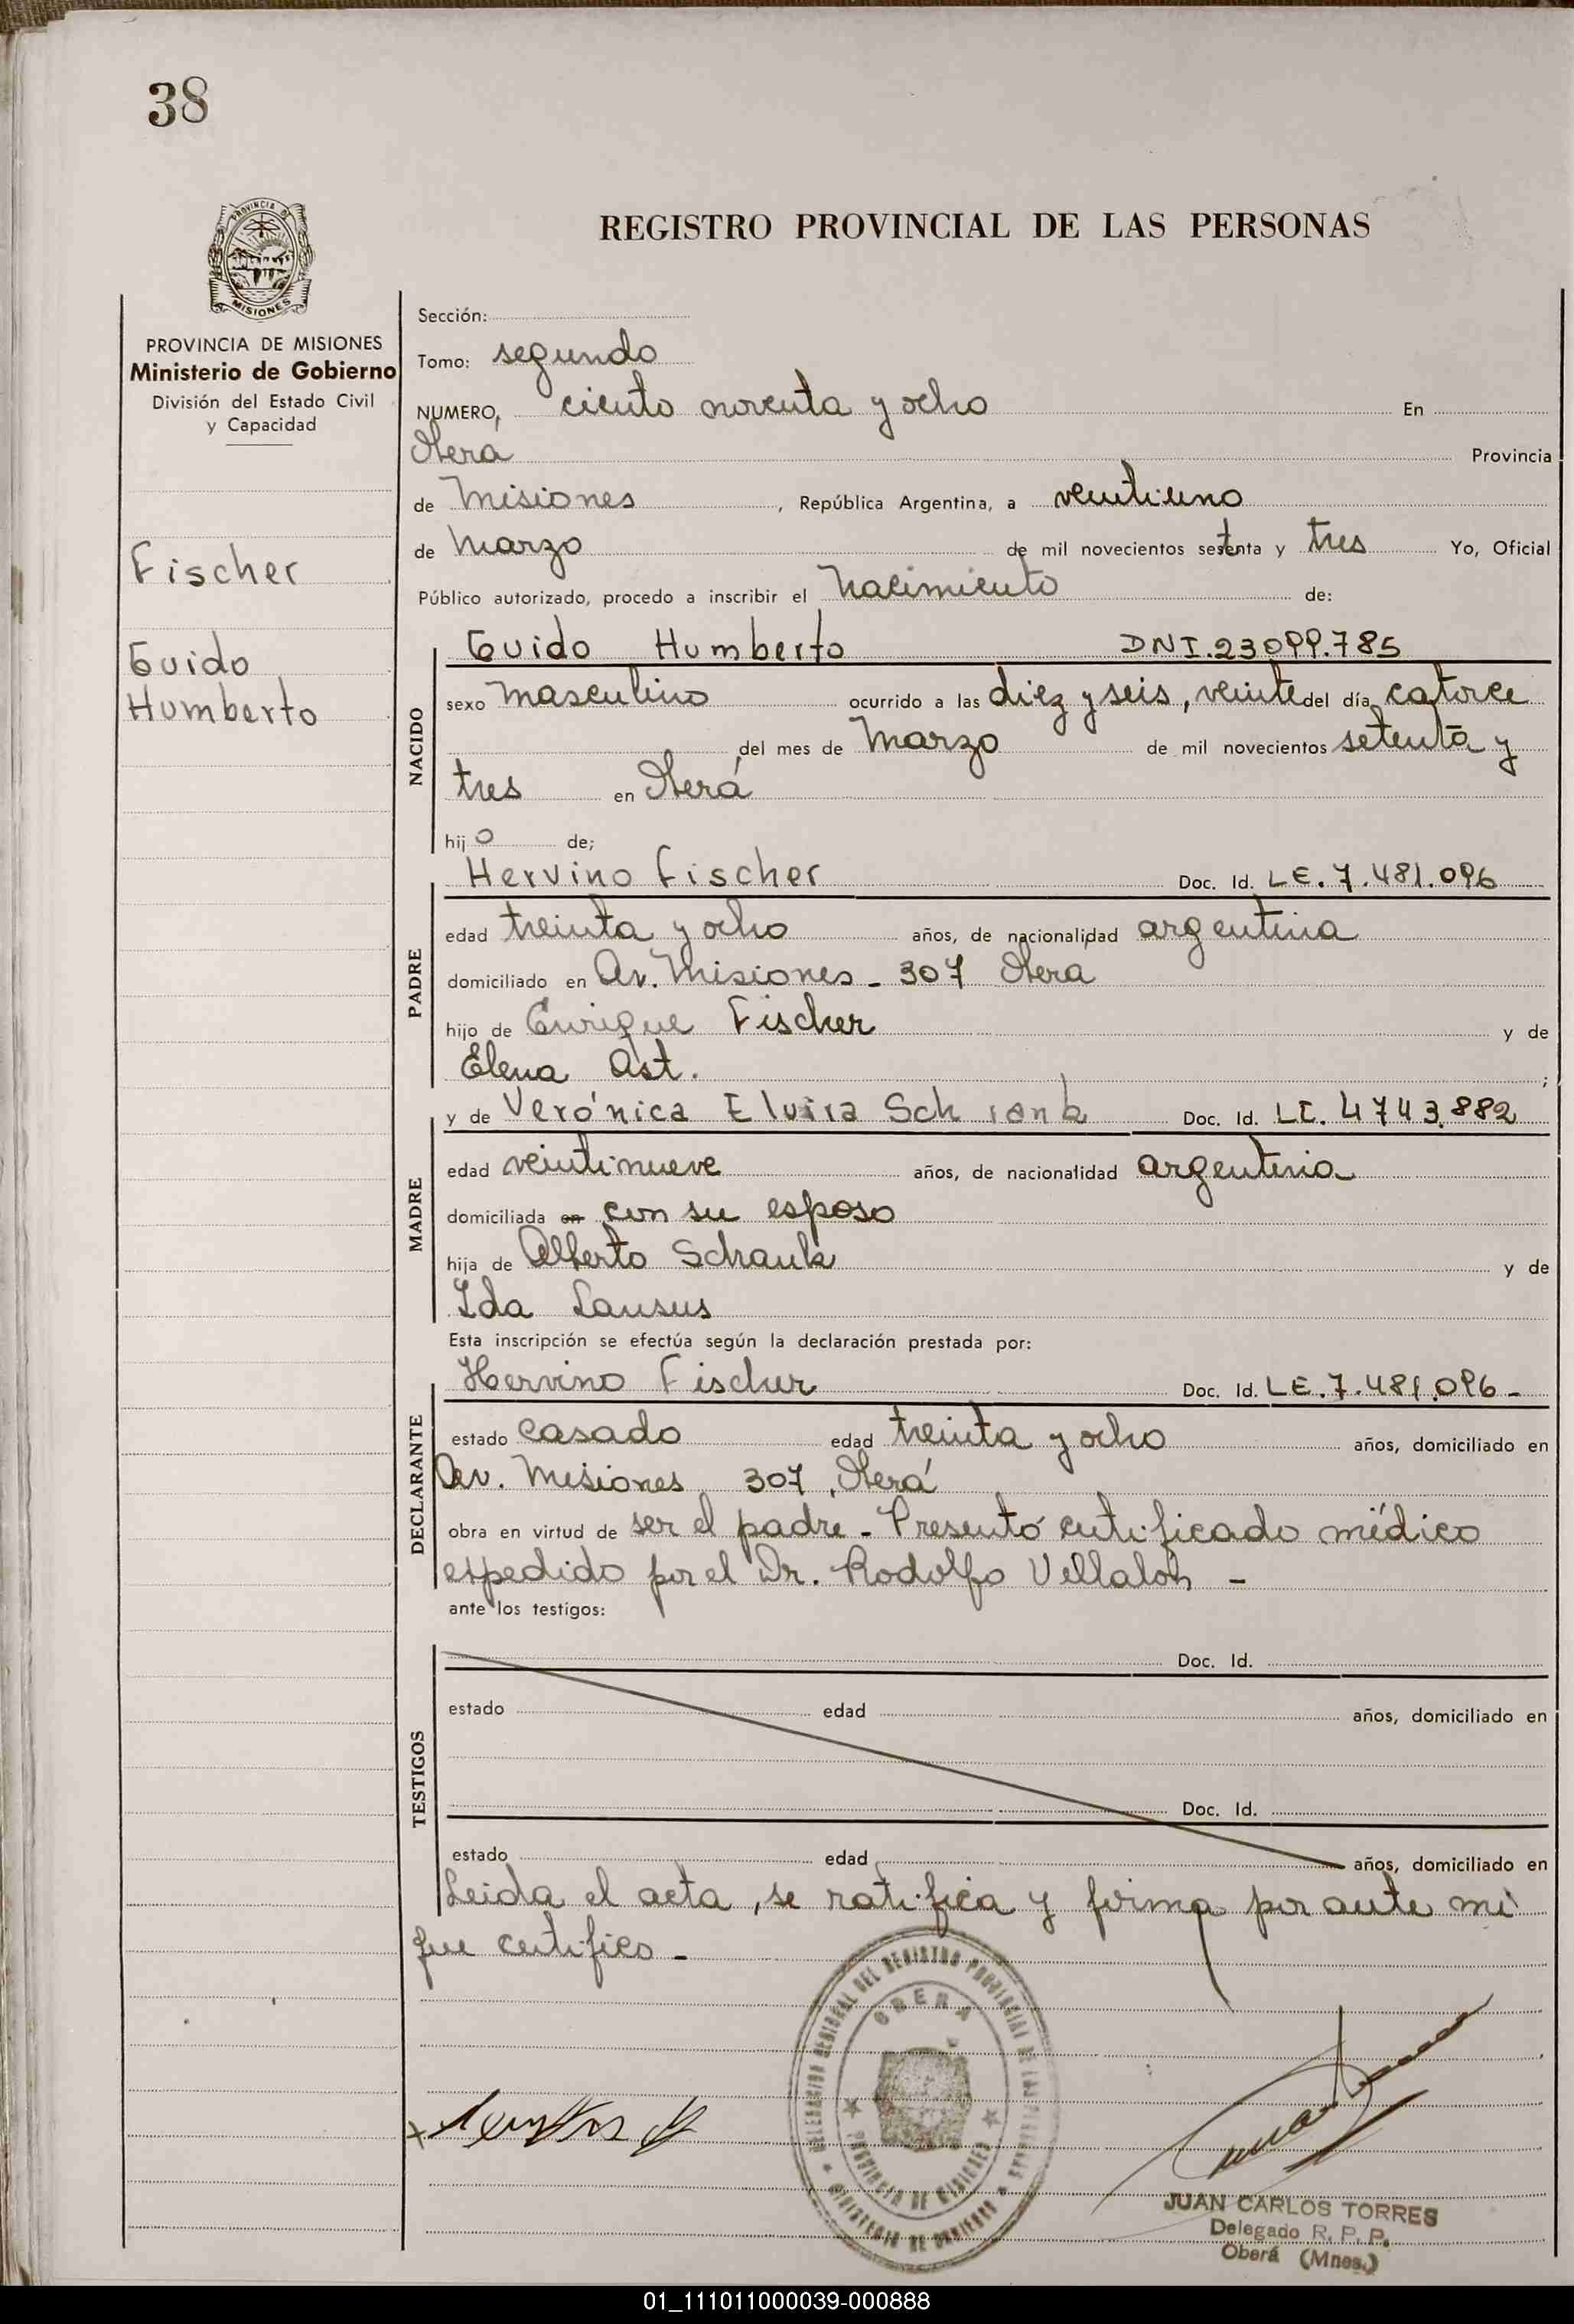 38
REGISTRO PROVINCIAL DE LAS PERSONAS
PROVINCIA DE
MISIONES
PROVINCIA DE MISIONES
Ministerio de Gobierno
División del Estado Civil
y Capacidad
Fischer
Guido
Humberto
Sección:
Tomo: segundo
NUMERO, ciento noventa y ocho En
Oberá Provincia
de Misiones, República Argentina, a veintiuno
de Marzo de mil novecientos setenta y tres Yo, Oficial
Público autorizado, procedo a inscribir el Nacimiento de:
NACIDO
Guido Humberto DNI.23099.785
sexo masculino ocurrido a las diez y seis, veinte del día catorce
del mes de Marzo de mil novecientos setenta y
tres en Oberá
hijo de;
PADRE
Hervino Fischer Doc. Id. LE. 7.481.096
edad treinta y ocho años, de nacionalidad argentina
domiciliado en Av. Misiones - 307 Oberá
hijo de Enrique Fischer y de
Elena Ast. ;
MADRE
y de Verónica Elvira Schrank Doc. Id. LC. 4743.882
edad veintinueve años, de nacionalidad argentina
domiciliada en con su esposo
hija de Alberto Schank y de
Ida Lausus
Esta inscripción se efectúa según la declaración prestada por:
DECLARANTE
Hervino Fischer Doc. Id. LE. 7.481.096 -
estado casado edad treinta y ocho años, domiciliado en
Av. Misiones 307, Oberá
obra en virtud de ser el padre - Presentó certificado médico
expedido por el Dr. Rodolfo Villalon -
ante los testigos:
TESTIGOS
Doc. Id.
estado edad años, domiciliado en
Doc. Id.
estado edad años, domiciliado en
Leida el acta, se ratifica y firma por ante mi
que certifico -
DELEGACION REGIONAL DEL REGISTRO PROVINCIAL DE LAS PERSONAS
OBERA
PROVINCIA DE MISIONES
MINISTERIO DE GOBIERNO
JUAN CARLOS TORRES
Delegado R. P. P.
Oberá (Mnes.)
01_111011000039-000888